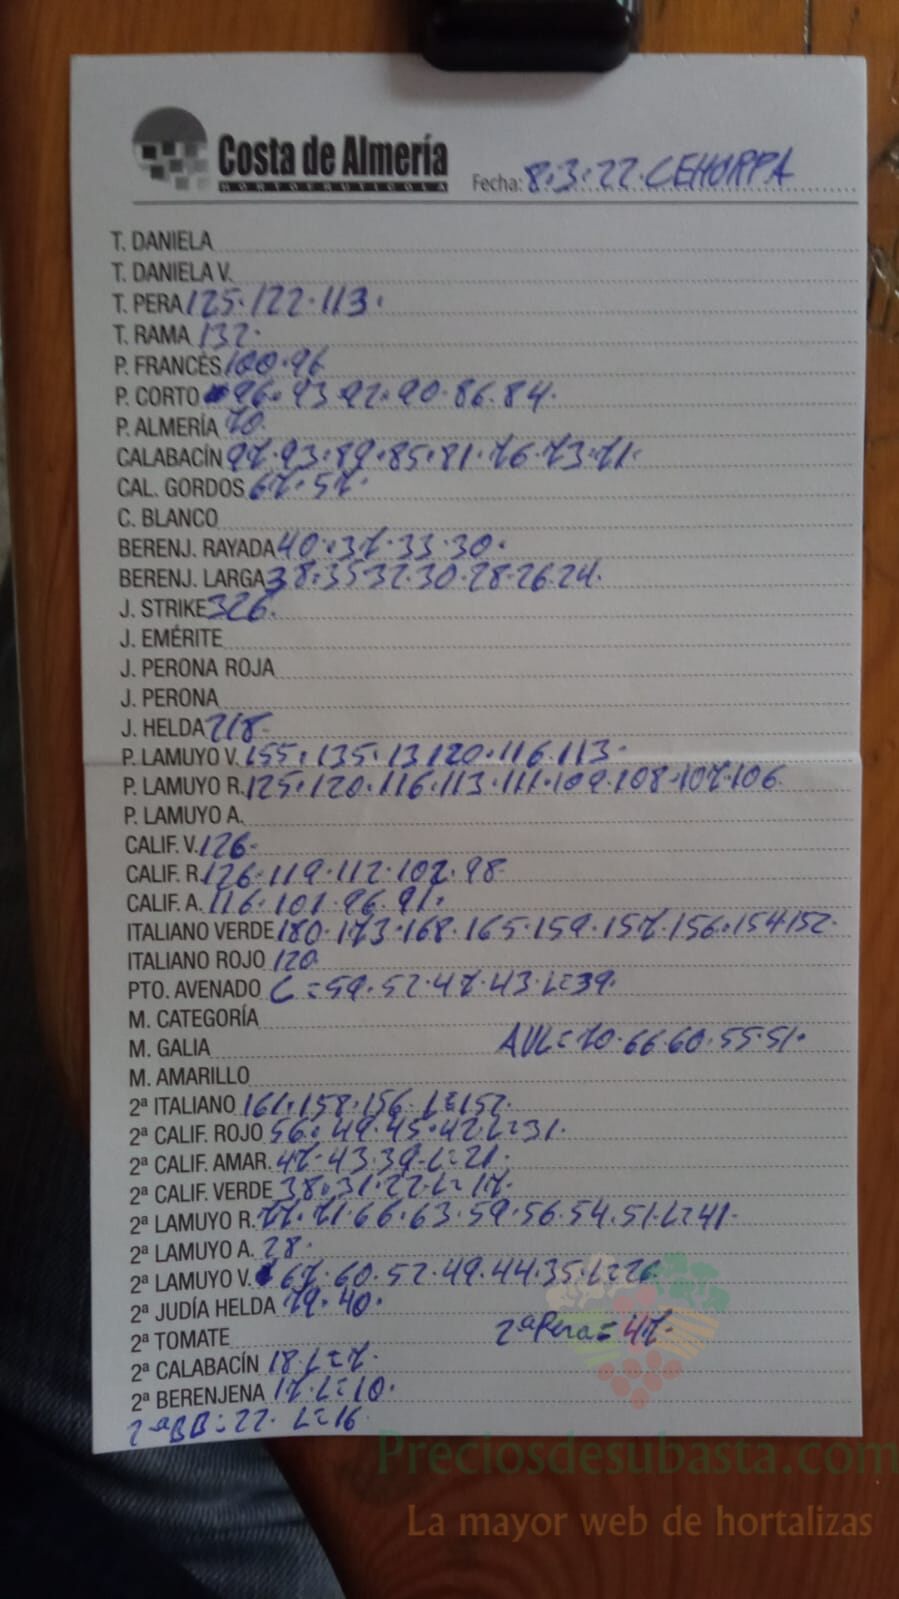 Costa de Almería
HORTOFRUTICOLA
Fecha: 8.3.22.CEHORPA
T. DANIELA
T. DANIELA V.
T. PERA 125.122.113.
T. RAMA 132.
P. FRANCÉS 100.96
P. CORTO 96.93.92.90.86.84.
P. ALMERÍA 70.
CALABACÍN 97.93.89.85.81.76.73.71.
CAL. GORDOS 67.57.
C. BLANCO
BERENJ. RAYADA 40.37.33.30.
BERENJ. LARGA 38.35 32.30.28.26.24.
J. STRIKE 326.
J. EMÉRITE
J. PERONA ROJA
J. PERONA
J. HELDA 218.
P. LAMUYO V. 155.135.13 120.116.113.
P. LAMUYO R. 125.120.116.113.111.109.108.107.106
P. LAMUYO A.
CALIF. V. 126.
CALIF. R. 126.119.112.102.98
CALIF. A. 116.101.96.91.
ITALIANO VERDE 180.173.168.165.159.157.156.154 152.
ITALIANO ROJO 120
PTO. AVENADO C=59.52.47.43.L=39.
M. CATEGORÍA
M. GALIA AVL=70.66.60.55.51.
M. AMARILLO
2ª ITALIANO 161.158.156.L=152.
2ª CALIF. ROJO 56.49.45.42.L=31.
2ª CALIF. AMAR. 47.43.39.L=21.
2ª CALIF. VERDE 38.31.22.L=17.
2ª LAMUYO R. 77.71.66.63.59.56.54.51.L=41.
2ª LAMUYO A. 28.
2ª LAMUYO V. 67.60.52.49.44.35.L=26
2ª JUDÍA HELDA 79.40.
2ª TOMATE 2ª Pera=47.
2ª CALABACÍN 18.L=7.
2ª BERENJENA 17.L=10.
2ªBB=22. L=16.
Preciosdesubasta.com
La mayor web de hortalizas